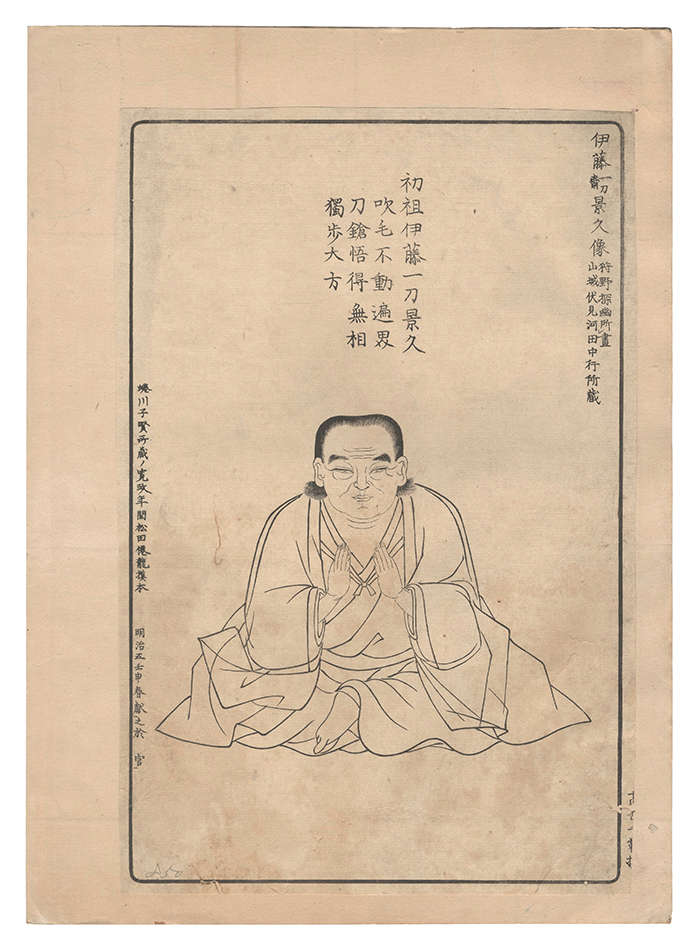 伊藤一刀景久像
狩野探幽所畫
山城伏見河田中行所藏
初祖伊藤一刀景久
吹毛不動遍界
刀鎗悟得無相
獨歩大方
蜷川子賢所藏ノ寛政年間松田僊龍摸本
明治五壬申春獻之於 官